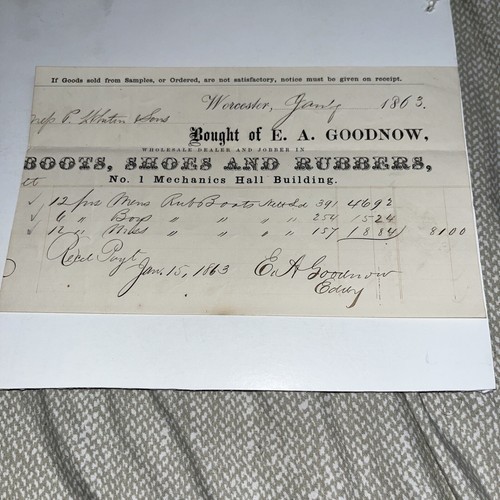 If Goods sold from Samples, or Ordered, are not satisfactory, notice must be given on receipt.
Worcester, Jany 1863.
P. Whitin & Sons
Bought of E. A. GOODNOW,
WHOLESALE DEALER AND JOBBER IN
BOOTS, SHOES AND RUBBERS,
No. 1 Mechanics Hall Building.
12 prs Mens Rub Boots 391 4692
6 " Boys " " " " 254 1524
12 " Miss " " " " 157 1884 8100
Recd Payt
Jan. 15, 1863 E A Goodnow